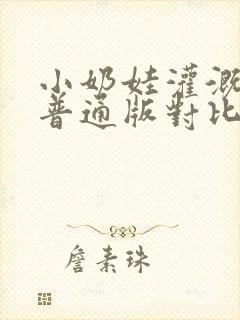 小奶娃灌溉
普通版對比
詹素珠